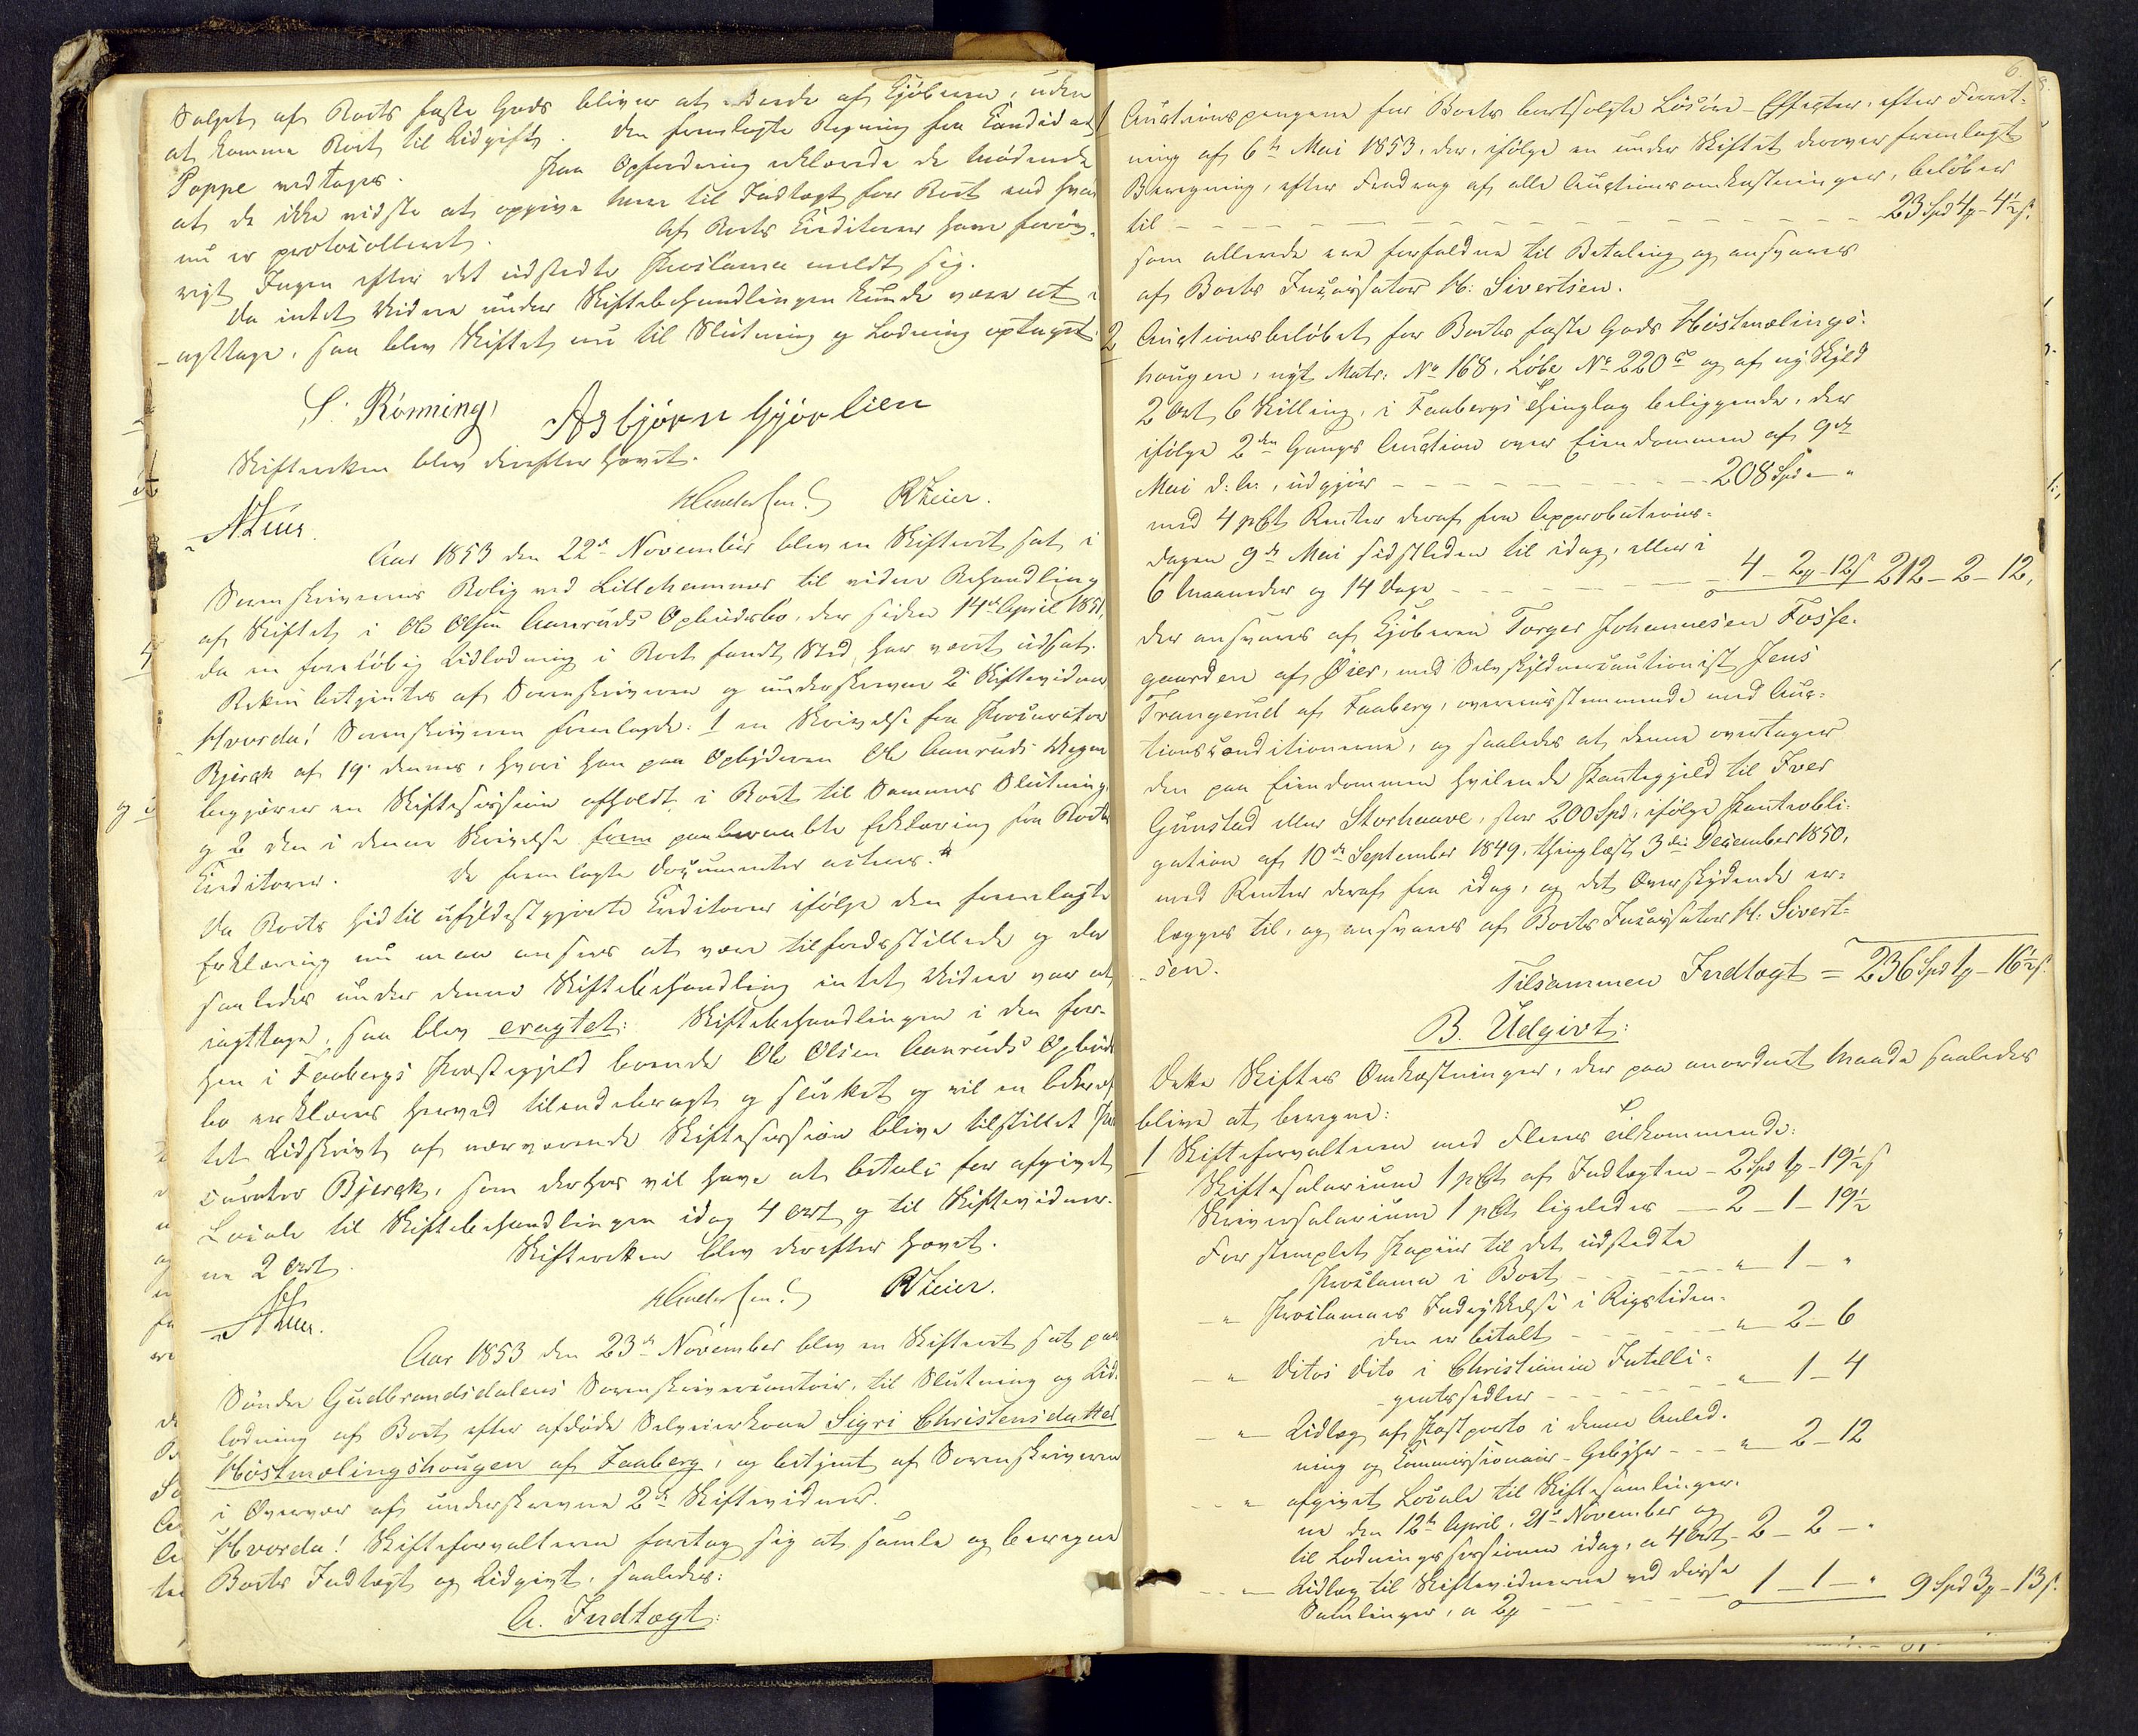 Salget af Boets faste Gods bliver at udrede af Kjöberen, uden
at komme Boet til Udgift. Den fremlagte Regning fra Candidat
Poppe vedtoges. Paa Opfordring erklærede de Mødende
at de ikke vidste at opgive mere til Indtægt for Boet end hvad
nu er protocolleret. Af Boets Creditorer have forøv-
rigt Ingen efter det udstedte Proclama meldt sig.
Da intet videre under Skiftebehandlingen kunde være at i-
agttage, saa blev Skiftet nu til Slutning og Lodning optaget.
S. Rönning, Asbjörn Gjörlien
Skifteretten blev derefter hævet.
RVeier.
Aar 1853 den 22de November blev en Skifteret sat i
Sorenskriverens Bolig ved Lillehammer til videre Behandling
af Skiftet i Ole Olsen Aanruds Opbudsbo, der siden 14de April 1851,
da en foreløbig Udlodning i Boet fandt Sted, har været udsat.
Retten betjentes af Sorenskriveren og underskrevne 2de Skiftevidner
Hvorda! Sorenskriveren fremlagde: 1 en Skrivelse fra Procurator
Bjerck af 19de dennes, hvori han paa Opbyderen Ole Aanruds Vegne
begjærer en Skiftesession afholdt i Boet til Sammes Slutning,
og 2 den i denne Skrivelse paaberaabte Erklæring fra Boets
Creditorer. De fremlagte Documenter acteres.
Da Boets hidtil ufyldestgjorte Creditorer ifølge den fremlagte
Erklæring nu maa ansees at være tilfredsstillede og der
saaledes under denne Skiftebehandling intet videre var at
iagttage, saa blev eragtet: Skiftebehandlingen i den for-
hen i Faabergs Præstegjeld boende Ole Olsen Aanruds Opbuds
bo erklæres herved tilendebragt og sluttet og vil en bekræf
tet Udskrivt af nærværende Skiftesession blive tilstillet Pro
curator Bjerck, som derhos vil have at betale for afgivet
Locale til Skiftebehandlingen idag 4 Ort og til Skiftevidner-
ne 2 Ort. Skifteretten blev derefter hævet.
RVeier.
Aar 1853 den 23de November blev en Skifteret sat paa
Søndre Gudbrandsdalens Sorenskrivercontoir, til Slutning og Ud-
lodning af Boet efter afdøde Selveierkone Sigri Christensdatter
Höstmælingshougen af Faaberg, og betjent af Sorenskriveren
i Overvær af underskrevne 2de Skiftevidner.
Hvorda! Skifteforvalteren foretog sig at samle og beregne
Boets Indtægt og Udgivt, saaledes:
A. Indtægt:
6.
1 Auctionspengene for Boets bortsolgte Løsøre-Effecter, efter Forret-
ning af 6te Mai 1853, der, ifølge en under Skiftet derover fremlagt
Beregning, efter Fradrag af alle Auctionsomkostninger, beløber
til 23 Spd 4 - 4½ s.
som allerede ere forfaldne til Betaling og ansvares
af Boets Incassator H: Sivertsen.
2 Auctionsbeløbet for Boets faste Gods Höstmælings-
hougen, nyt Matr: No 168, Løbe No 220 og af ny Skyld
2 Ort 6 Skilling, i Faabergs Thinglag beliggende, der
ifølge 2den Gangs Auction over Eiendommen af 9de
Mai d: A:, udgjør 208 Spd - "
med 4 pCt Renter deraf fra Approbations-
dagen 9de Mai sidstleden til idag, eller i
6 Maaneder og 14 Dage 4 - 2 - 12 s 212 - 2 - 12,
der ansvares af Kjøberen Torger Johannesen Fosse-
gaarden af Öier, med Selvskyldnercautionist Jens
Trangerud af Faaberg, overensstemmende med Auc-
tionsconditionerne, og saaledes at denne overtager
den paa Eiendommen hvilende Pantegjeld til Iver
Gunstad eller Storhaave, stor 200 Spd, ifølge Panteobli-
gation af 10de September 1849, thinglæst 3die December 1850,
med Renter deraf fra idag, og det Overskydende er-
lægges til, og ansvares af Boets Incassator H: Sivert-
sen.
Tilsammen Indtægt = 236 Spd 1 - 16½ s.
B. Udgivt:
Dette Skiftes Omkostninger, der paa anordnet Maade saaledes
blive at beregne:
1 Skifteforvalteren med Flere tilkommende:
Skiftesalarium 1 pCt af Indtægten - 2 Spd 1 - 19½ s
Skriversalarium 1 pCt ligeledes - 2 - 1 - 19½
For stemplet Papiir til det udstedte
Proclama i Boet " 1 - "
" Proclamas Indrykkelse i Rigstiden-
den er betalt " 2 - 6
" Ditos Dito i Christiania Intelli-
gentssedler " 1 - 4
" Udlæg af Postporto i denne Anled-
ning og Commissionair-Gebyhr " 2 - 12
" afgivet Locale til Skiftesamlinger-
ne den 12te April, 21de November og
til Lodningssessionen idag, a 4 Ort - 2 - 2 - "
" Udlæg til Skiftevidnerne ved disse
Samlinger, a 2 1 - 1 - " 9 Spd 3 - 13 s.